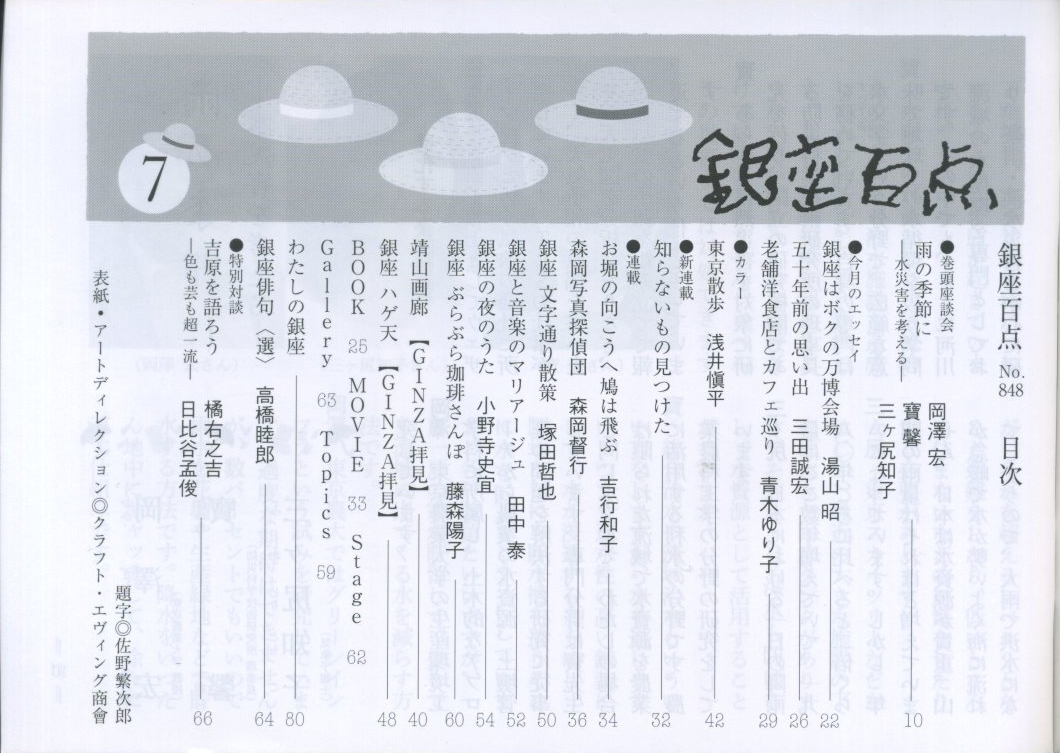 7
銀座百点
銀座百点 No.848 目次
●巻頭座談会
雨の季節に
―水災害を考える―
岡澤 宏
寶 馨
三ヶ尻知子
10
●今月のエッセイ
銀座はボクの万博会場 湯山 昭 22
五十年前の思い出 三田誠宏 26
老舗洋食店とカフェ巡り 青木ゆり子 29
●カラー
東京散歩 浅井愼平 42
●新連載
知らないもの見つけた 32
●連載
お堀の向こうへ鳩は飛ぶ 吉行和子 34
森岡写真探偵団 森岡督行 36
銀座 文字通り散策 塚田哲也 50
銀座と音楽のマリアージュ 田中 泰 52
銀座の夜のうた 小野寺史宜 54
銀座 ぶらぶら珈琲さんぽ 藤森陽子 60
靖山画廊 【GINZA拝見】 40
銀座 ハゲ天 【GINZA拝見】 48
BOOK 25 MOVIE 33 Stage 62
Gallery 63 Topics 59
わたしの銀座 80
銀座俳句〈選〉 高橋睦郎 64
●特別対談
吉原を語ろう
―色も芸も超一流―
橘右之吉
日比谷孟俊
66
題字◎佐野繁次郎
表紙・アートディレクション◎クラフト・エヴィング商會